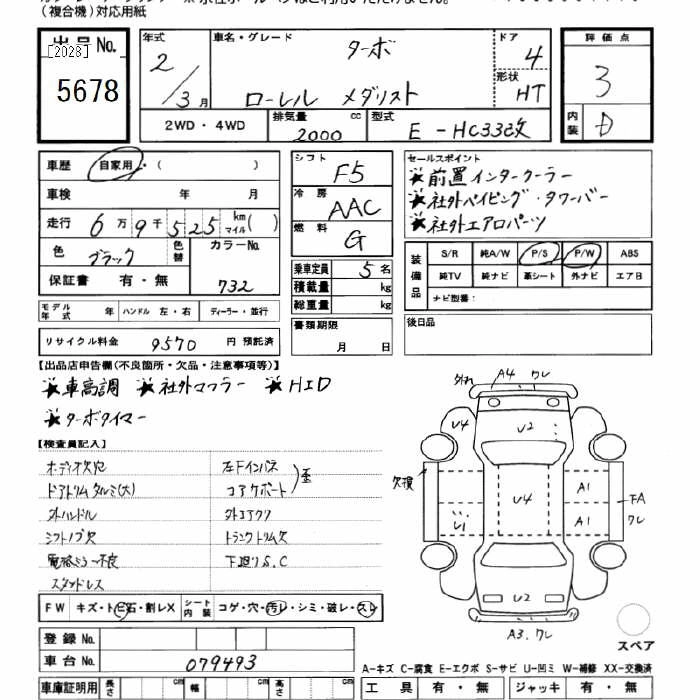 (複合機)対応用紙
出品No. [2028]
5678
年式 2/3月
車名・グレード ターボ
ローレル メダリスト
ドア 4
形状 HT
2WD・4WD
排気量 2000 cc
型式 E-HC33改
評価点 3
内装 D
車歴 自家用・( )
車検 年 月
走行 6万9千525 km マイル( )
色 ブラック 色替
カラーNo. 732
保証書 有・無
シフト F5
冷房 AAC
燃料 G
乗車定員 5名
積載量 kg
総重量 kg
セールスポイント
★前置インタークーラー
★社外パイピング・タワーバー
★社外エアロパーツ
装備品 S/R 純A/W P/S P/W ABS
純TV 純ナビ 革シート 外ナビ エアB
ナビ型番:
モデル年式 年 ハンドル 左・右 ディーラー・並行
書類期限 月 日
後日品
リサイクル料金 9570 円 預託済
【出品店申告欄(不良箇所・欠品・注意事項等)】
★車高調 ★社外マフラー ★HID
★ターボタイマー
【検査員記入】
オーディオ欠穴 左Fインパネ
ドアトリムタルミ(大) コアサポート 歪
外ハンドル 外エアクリ
シフトノブ欠 トランクトリム欠
電格ミラー不良 下廻りS.C
スタッドレス
外れ A4 ワレ
U4 U2
欠損 U4 A1 FA
U1 A1 ワレ
U2
A3.ワレ
スペア
FW キズ・トビ石・割レX シート内装 コゲ・穴・汚レ・シミ・破レ・スレ
登録No.
車台No. 079493
A-キズ C-腐食 E-エクボ S-サビ U-凹ミ W-補修 XX-交換済
車庫証明用 長さ cm 幅 cm 高さ cm 工具 有・無 ジャッキ 有・無